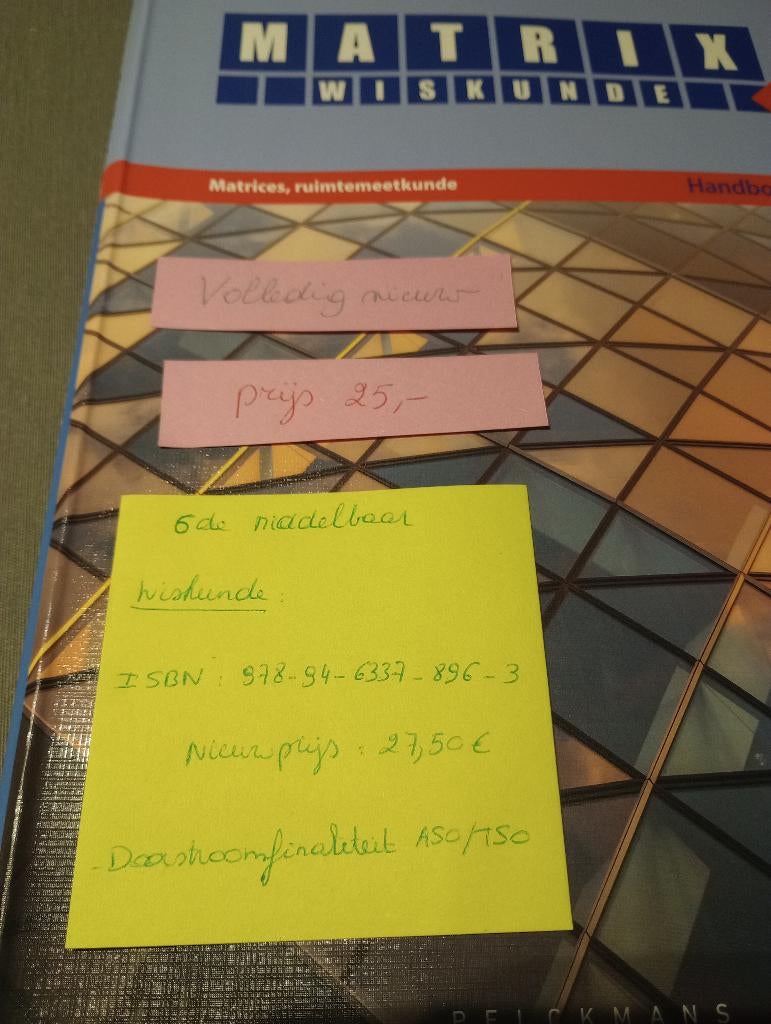 MATRIX
WISKUNDE
Matrices, ruimtemeetkunde Handbo
Volledig nieuw
prijs 25,-
6de middelbaar
Wiskunde:
ISBN: 978-94-6337-896-3
Nieuwprijs: 27,50€
-Doorstroomfinaliteit ASO/TSO
PELCKMANS